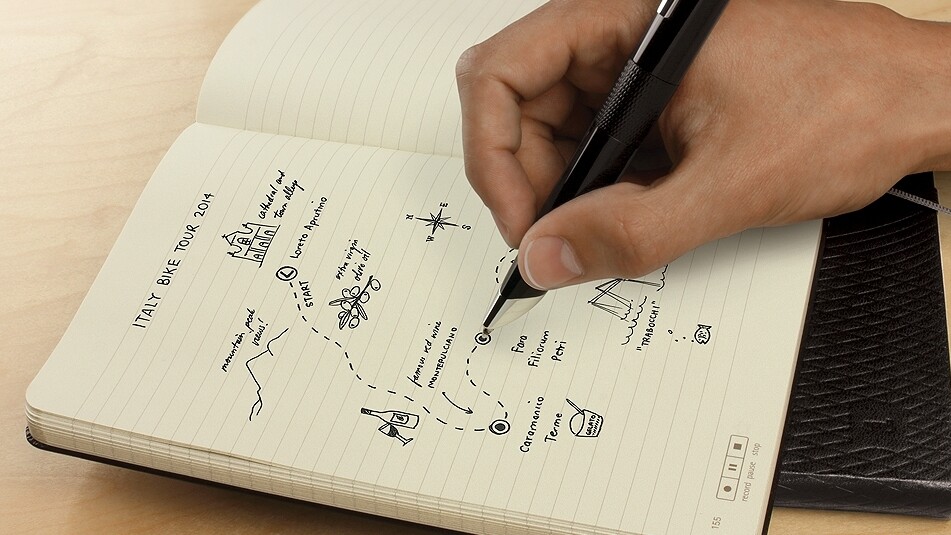 ITALY BIKE TOUR 2014
cathedral and
town
Loreto Aprutino
L
START
extra virgin
olive oil
mountain peak
N
E
S
W
famous red wine
MONTEPULCIANO
Fara
Filiorum
Petri
"TRABOCCHI"
Caramanico
Terme
GELATO
record pause stop
155